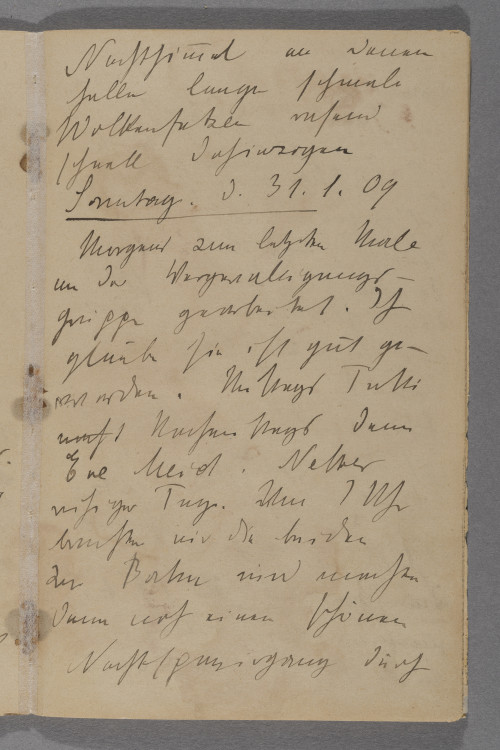 Nachthimmel an denen
helle lange schmale
Wolkenfetzen rasend
schnell dahinzogen
Sonntag. d. 31. 1. 09
Morgens zum letzten Male
an der Vergewaltigungs-
gruppe gearbeitet. Ich
glaube sie ist gut ge-
worden. Mittags Tutti
Nachmittags dann
Eve Meid. Netter
ruhiger Tag. Um 7 Uhr
brachten wir die beiden
zur Bahn und machten
dann noch einen schönen
Nachtspaziergang durch